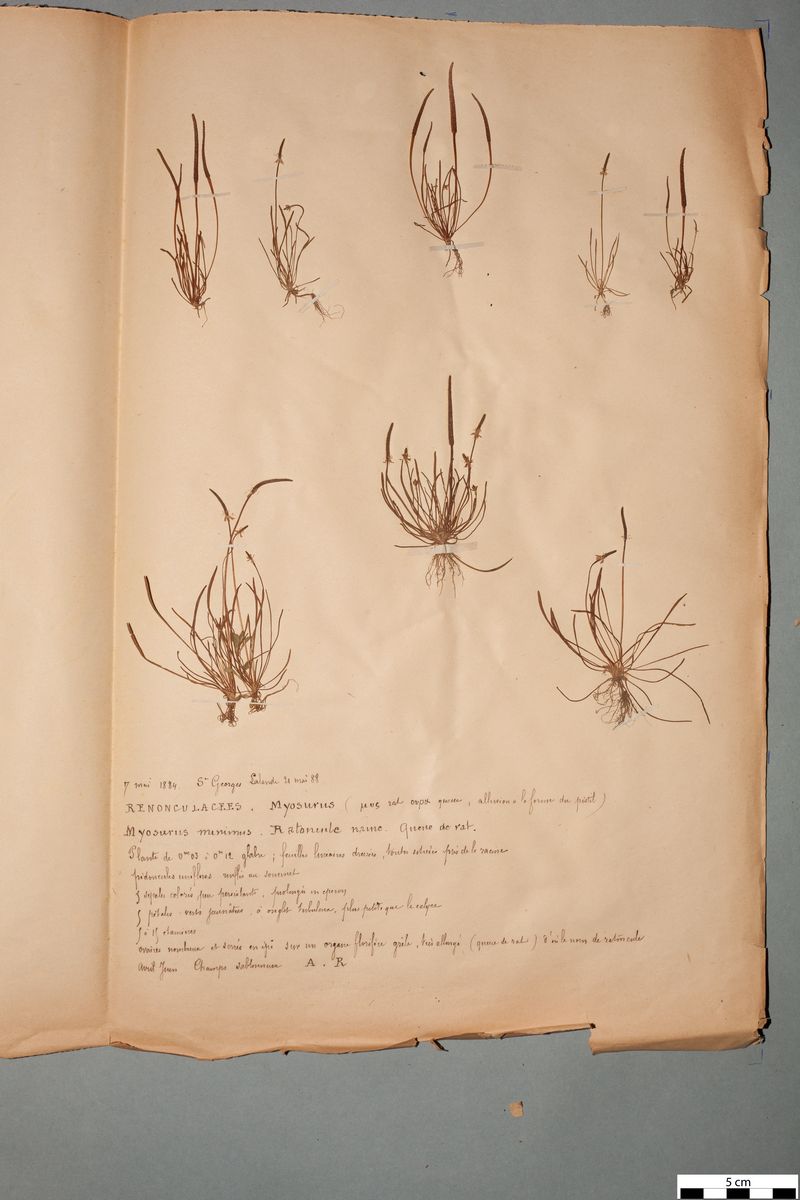 7 mai 1884. St Georges Lalande 21 mai 88
RENONCULACEES. Myosurus (μυς rat ουρα queue, allusion a la forme du pistil)
Myosurus minimus. Ratoncule naine. Queue de rat.
Plante de 0m03 à 0m12 glabre; feuilles lineaires dressées, toutes situées près de la racine
pédoncules uniflores renflés au sommet
5 sépales colorés peu persistants, prolongés en eperon
5 pétales verts jaunâtres, à onglet tubuleux, plus petits que le calyce
5 à 15 etamines
ovaires nombreux et serrés en épi sur un organe florifère grêle, très allongé (queue de rat) d'où le nom de ratoncule
Avril Juin Champs sablonneux A. R
5 cm